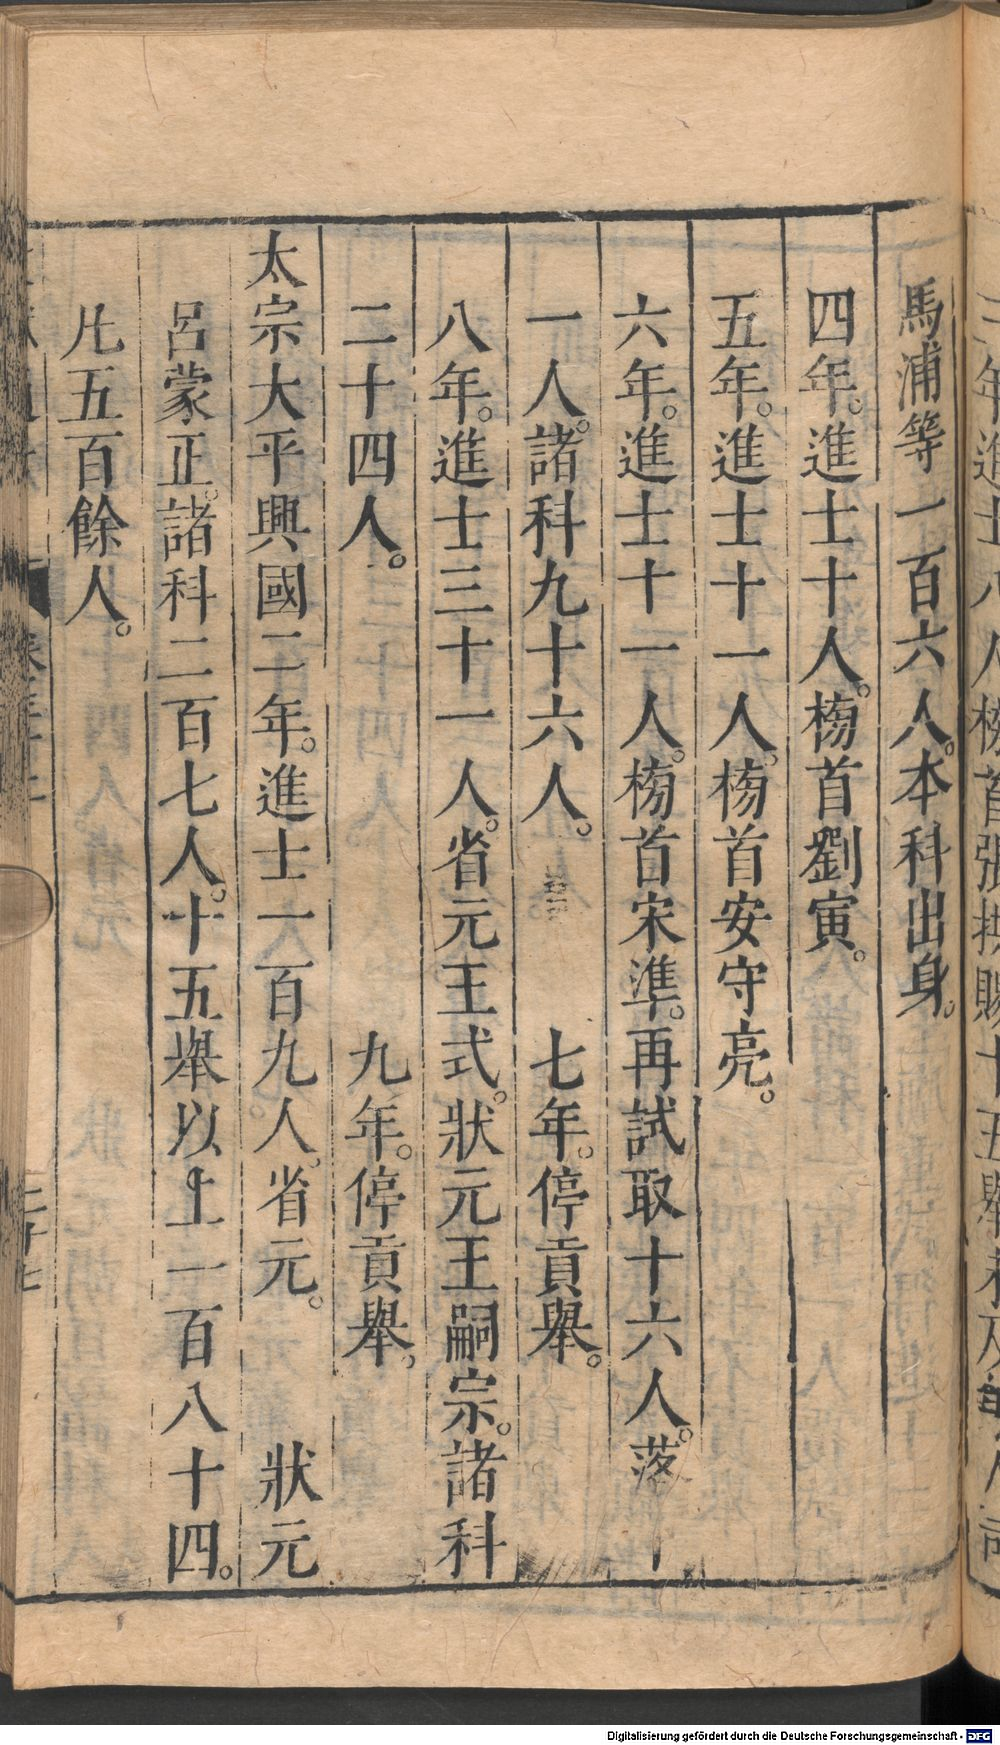 馬浦等一百六人。本科出身。
四年。進士十人。榜首劉寅。
五年。進士十一人。榜首安守亮。
六年。進士十一人。榜首宋準。再試取十六人。落
一人。諸科九十六人。 七年。停貢舉。
八年。進士三十一人。省元王式。狀元王嗣宗。諸科
二十四人。 九年。停貢舉。
太宗大平興國二年。進士一百九人。省元。 狀元
呂蒙正。諸科二百七人。十五舉以上一百八十四。
凡五百餘人。
Digitalisierung gefördert durch die Deutsche Forschungsgemeinschaft - DFG